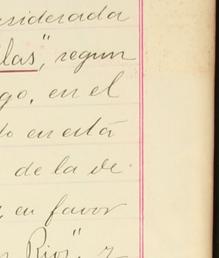 nsiderada
llas", segun
go, en el
do en está
de la de
, en favor
n Rios", y